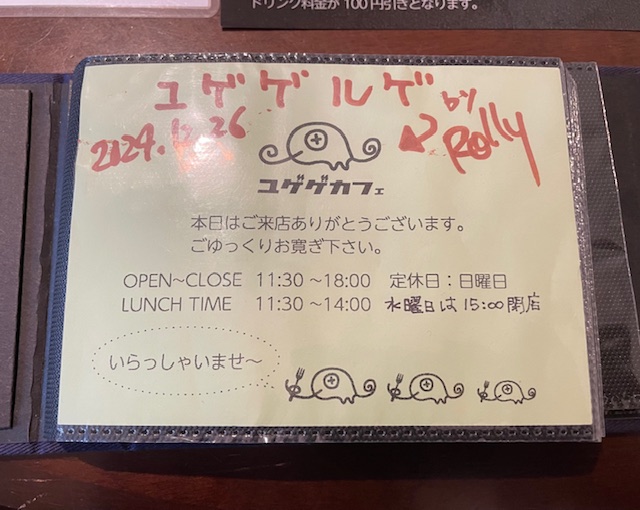 ドリンク料金が100円引きとなります。
ユゲゲルゲ by Rolly
2024.12.26
ユゲゲカフェ
本日はご来店ありがとうございます。
ごゆっくりお寛ぎ下さい。
OPEN~CLOSE 11:30 ~18:00 定休日:日曜日
LUNCH TIME 11:30 ~14:00 水曜日は15:00閉店
いらっしゃいませ~